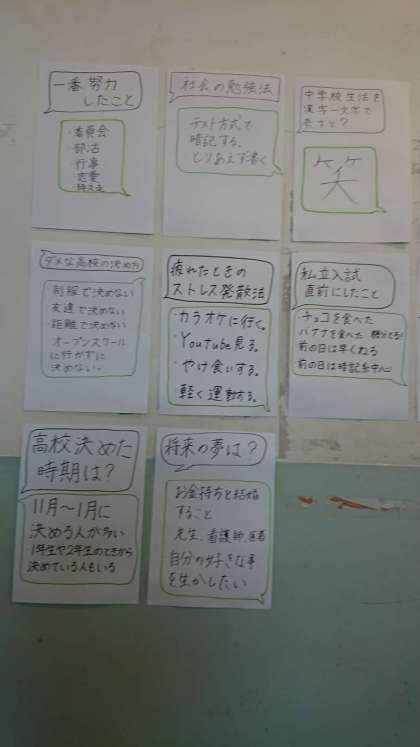 一番努力
したこと
・委員会
部活
行事
恋愛
持久走
社会の勉強法
テスト方式で
暗記する、
とりあえず書く
中学校生活を
漢字一文字で
表すと?
笑
ダメな高校の決め方
・制服で決めない
友達で決めない
距離で決めない
オープンスクール
に行かずに
決めない。
疲れたときの
ストレス発散法
・カラオケに行く。
・Youtube見る。
・やけ食いする。
軽く運動する。
私立入試
直前にしたこと
チョコを食べた
バナナを食べた 糖分とる!
前の日は早くねる
前の日は暗記を中心
高校決めた
時期は?
11月~1月に
決める人が多い
1年生や2年生のときから
決めている人もいる
将来の夢は?
お金持ちと結婚
すること
先生、看護師、医者
自分の好きな事
を生かしたい